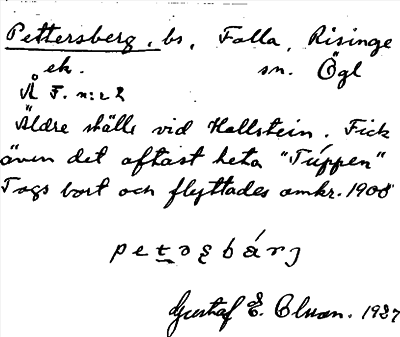 Pettersberg, bs, Falla, Risinge
ek. sn. Ögl
Ä F. n:r 2
Äldre ställe vid Hallstein. Fick
även det oftast heta "Túppen"
Togs bort och flyttades omkr. 1908
Gustaf E. Olsson. 1937